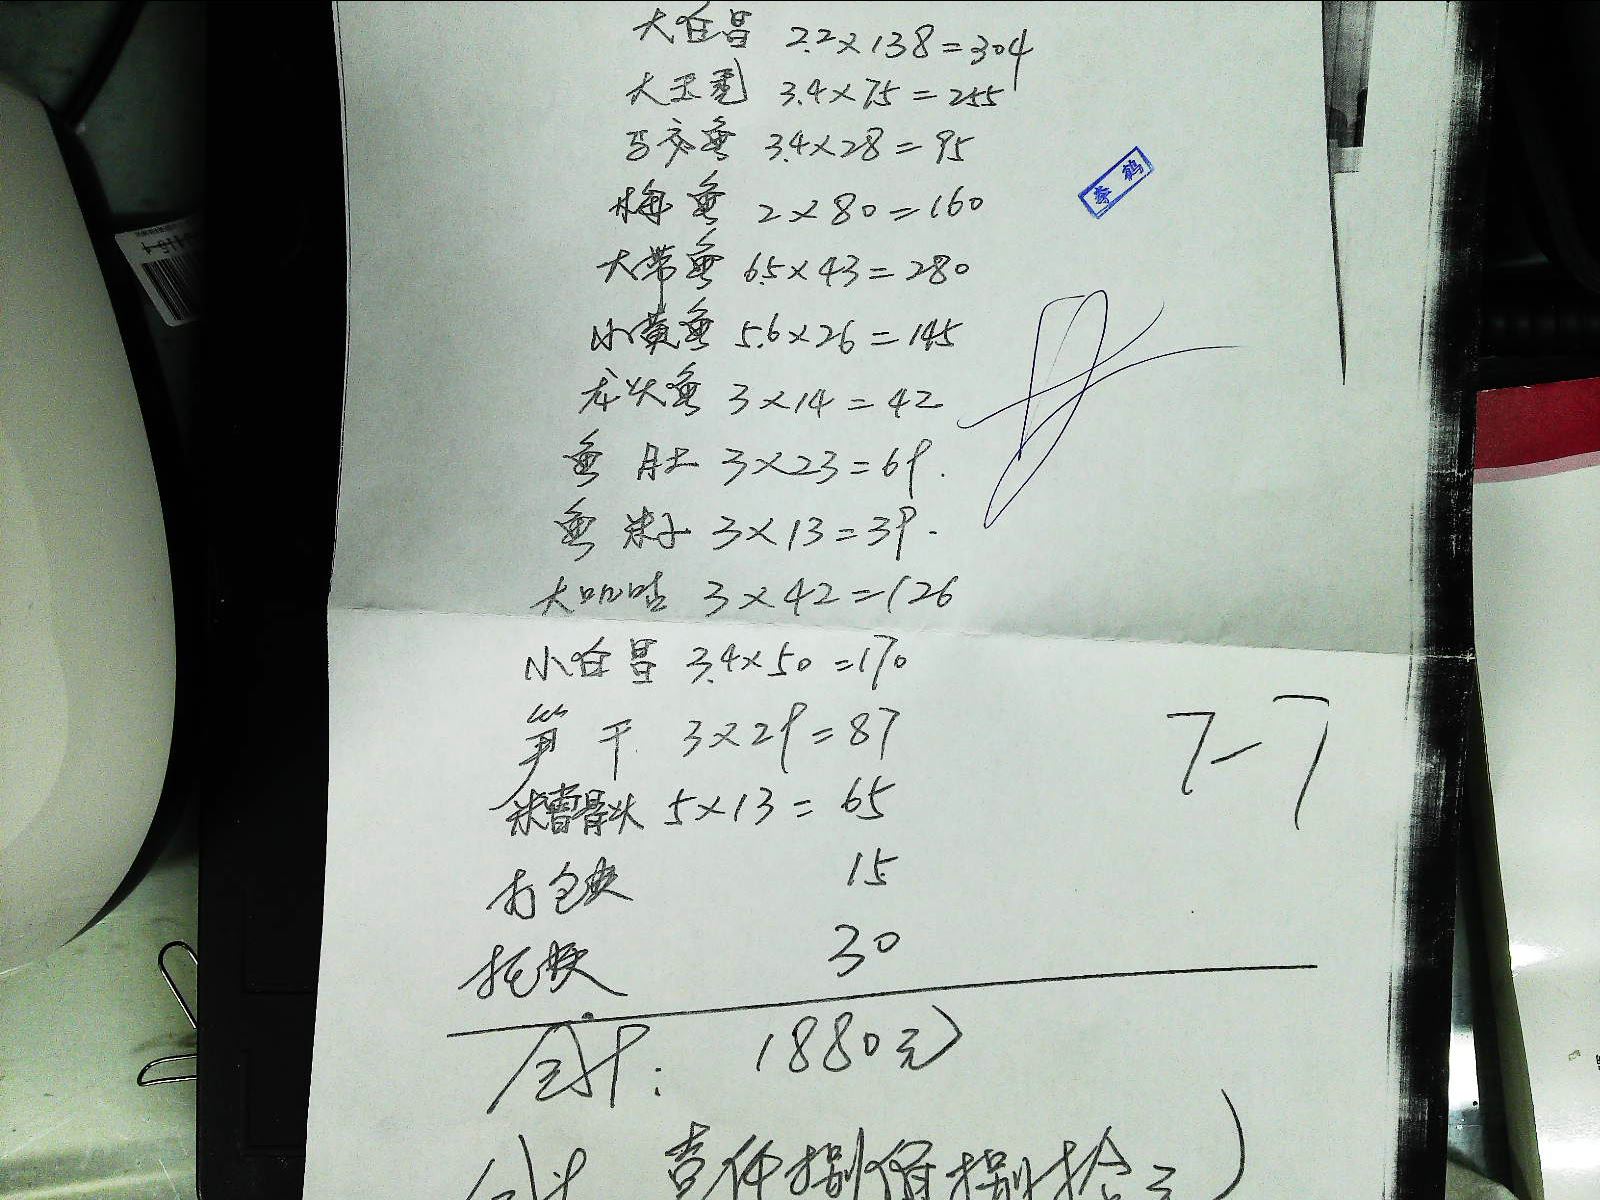 大仓昌 2.2×138=304
大玉秃 3.4×75=255
马交鱼 3.4×28=95
李鹤
梅鱼 2×80=160
大带鱼 6.5×43=280
小黄鱼 5.6×26=145
龙头鱼 3×14=42
鱼肚 3×23=69.
鱼籽 3×13=39.
大叽咕 3×42=126
小仓昌 3.4×50=170
笋干 3×29=87
7-7
糟骨头 5×13=65
打包费 15
托费 30
合计: 1880元
合计 壹仟捌佰捌拾元